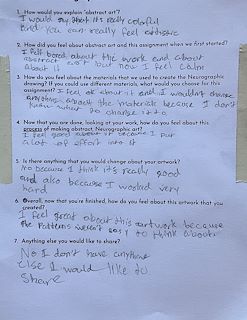 1. How would you explain "abstract art"?
I would say that it's really colorful
and you can really feel
2. How did you feel about abstract art and this assignment when we first started?
I felt bored about the work and about
abstract art but now I feel calm
about it
3. How do you feel about the materials that we used to create the Neurographic
drawing? If you could use different materials, what would you choose for this
assignment? I feel ok about it and I wouldn't change
anything about the materials because I don't
know what to change it to
4. Now that you are done, looking at your work, how do you feel about this
process of making abstract, Neurographic art?
I feel good about it because I put
a lot of effort into it
5. Is there anything that you would change about your artwork?
No because I think it's really good
and also because I worked very
hard
6. Overall, now that you're finished, how do you feel about this artwork that you
created?
I feel great about this artwork because
the patterns weren't easy to think about
7. Anything else you would like to share?
No I don't have anything
else I would like to
share